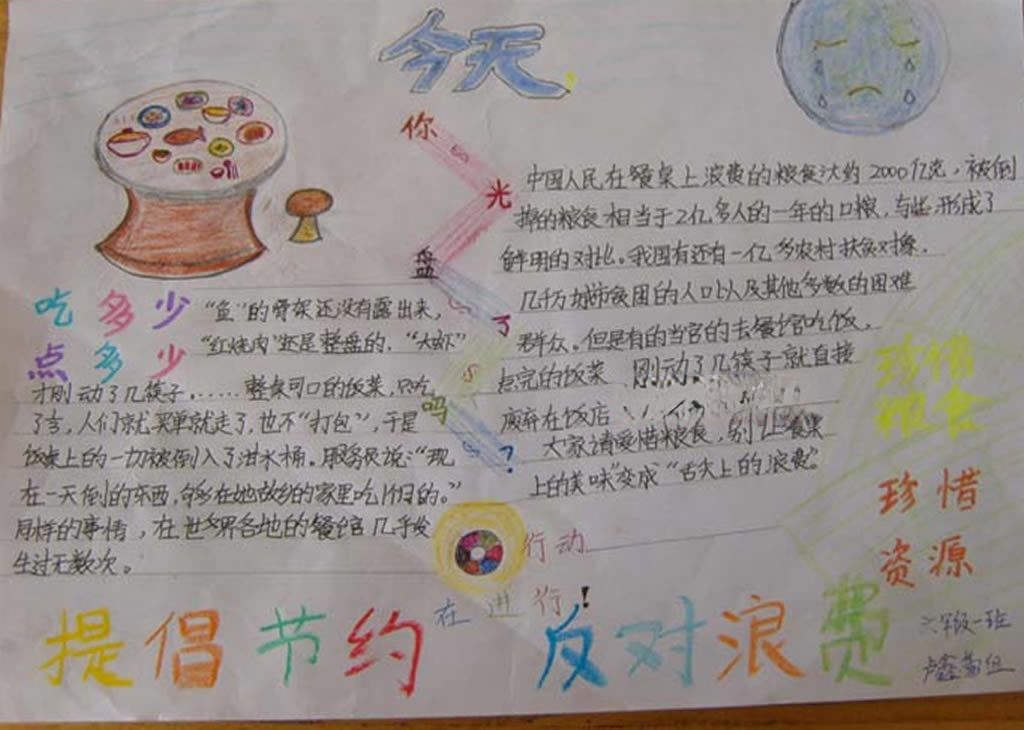 今天，
你
光
盘
了
吗
？
吃多少
点多少
“鱼”的骨架还没有露出来，
“红烧肉”还是整盘的，“大虾”
才刚动了几筷子.……整桌可口的饭菜，只吃
了言，人们就买单就走了，也不“打包”，于是
饭桌上的一切被倒入了泔水桶。服务员说：“现
在一天倒的东西，够在她故乡的家里吃1个月的。”
同样的事情，在世界各地的餐馆几乎发
生过无数次。
中国人民在餐桌上浪费的粮食达约2000亿克，被倒
掉的粮食相当于2亿多人的一年的口粮，与此形成了
鲜明的对比。我国有还有一亿多农村扶贫对象.
几千万城市贫困的人口以及其他多数的困难
群众。但是有的当官的去餐馆吃饭，
点完的饭菜 刚动了几筷子就直接
废弃在饭店
大家请爱惜粮食，别让餐桌
上的美味”变成“舌尖上的浪费”。
珍惜
粮食
珍惜
资源
行动
在进行！
提倡节约 反对浪费
六年级一班